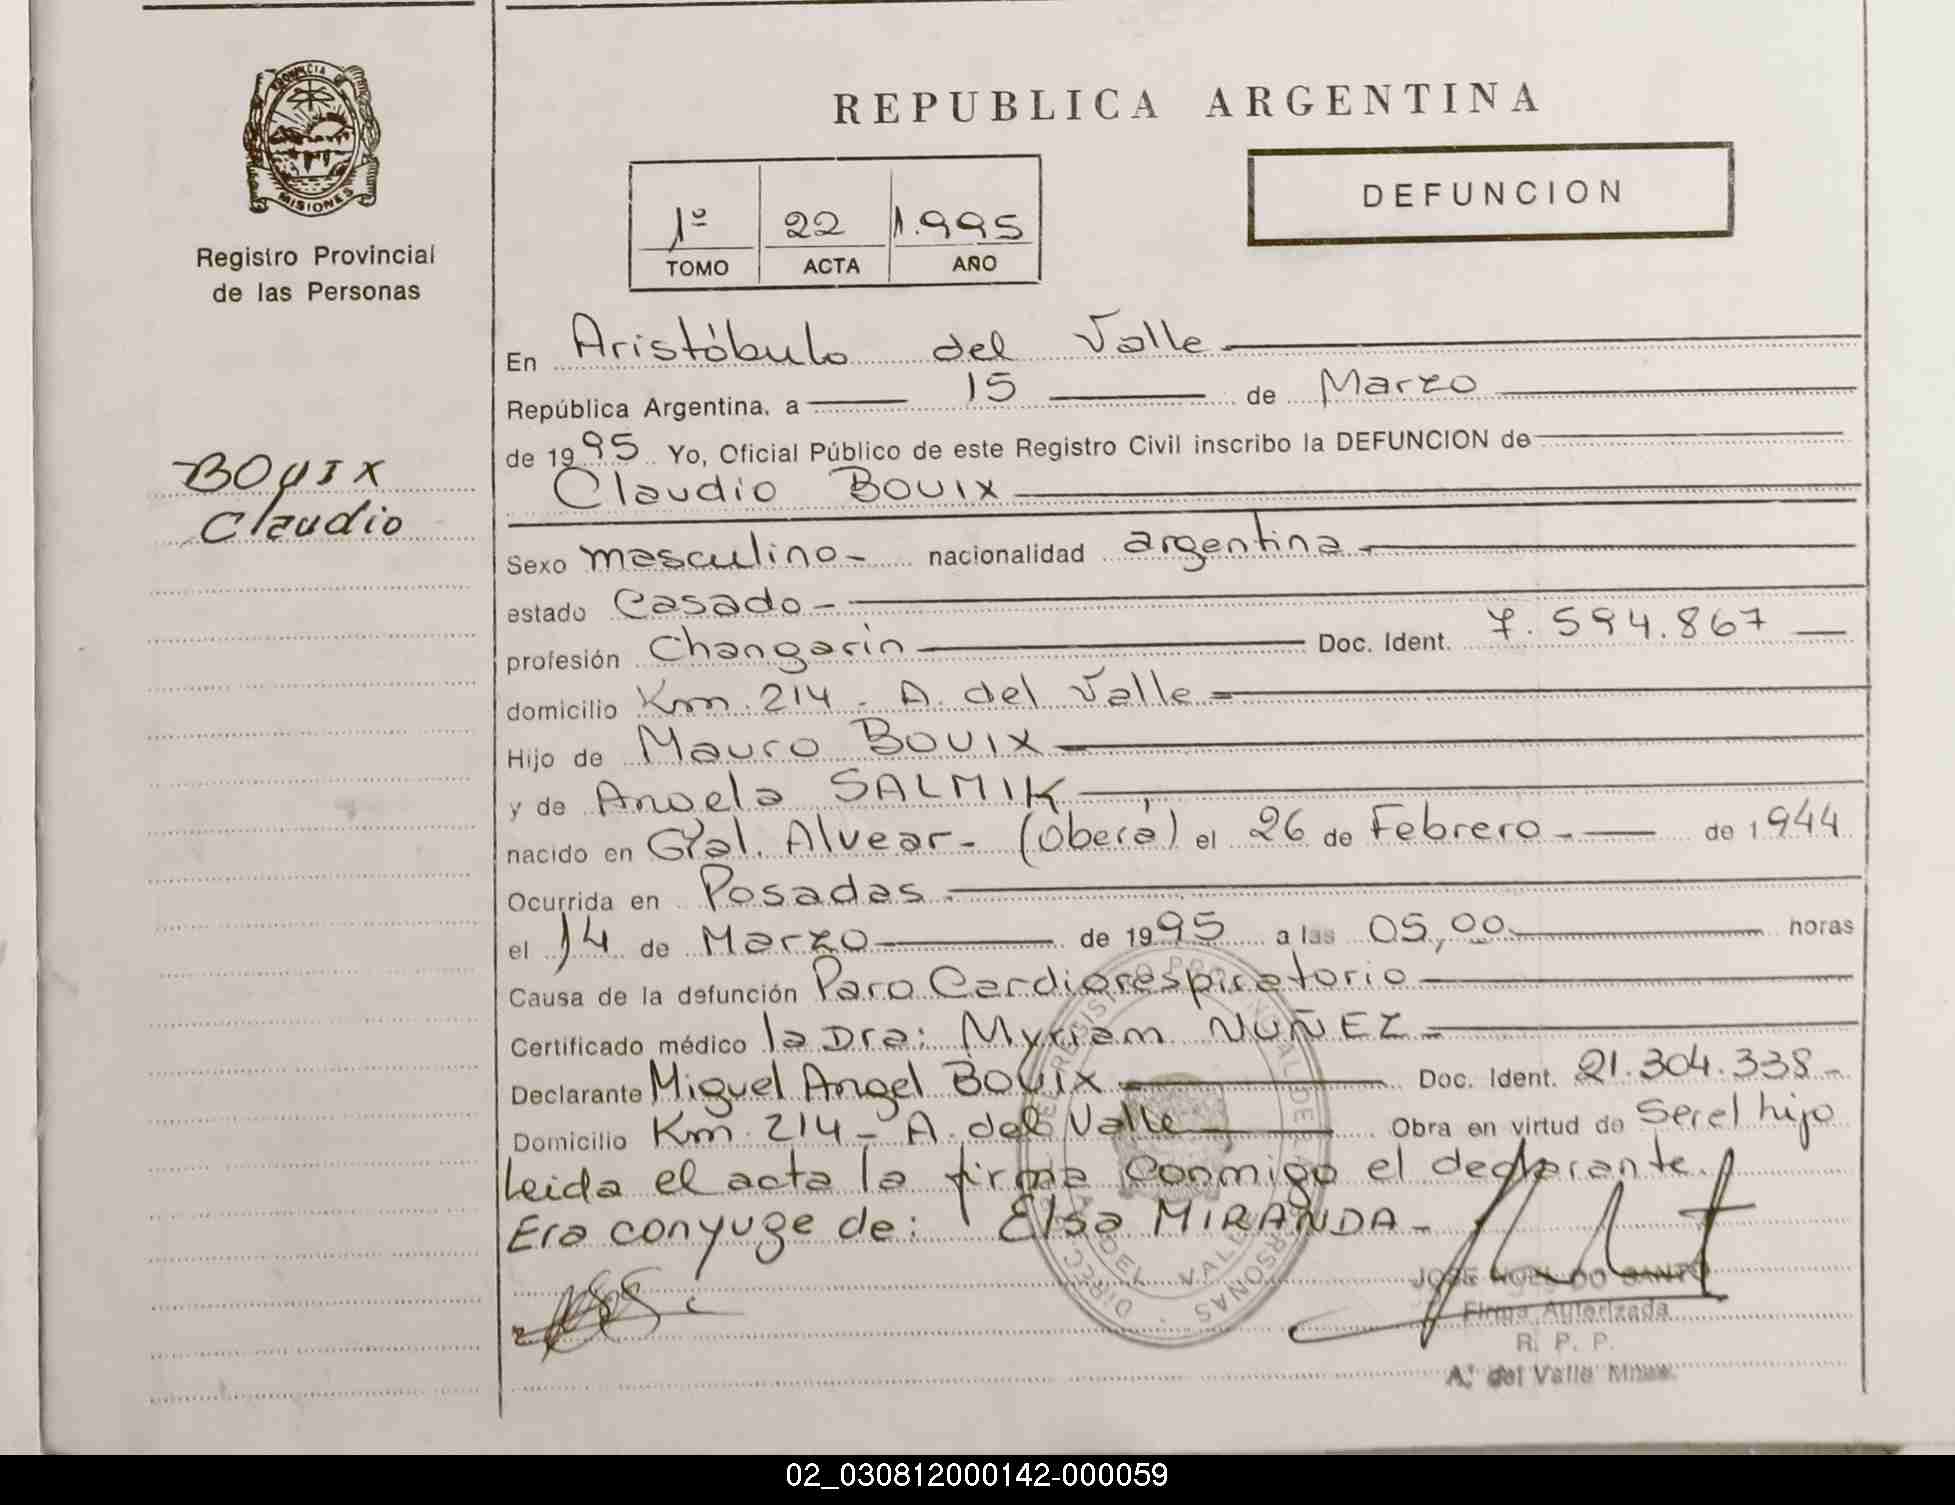 PROVINCIA DE
MISIONES
Registro Provincial
de las Personas
BOUIX
Claudio
REPUBLICA ARGENTINA
1º 22 1.995
TOMO ACTA AÑO
DEFUNCION
En Aristóbulo del Valle
República Argentina, a 15 de Marzo
de 1995 Yo, Oficial Público de este Registro Civil inscribo la DEFUNCION de
Claudio BOUIX
Sexo masculino- nacionalidad argentina.
estado Casado-
profesión Changarin Doc. Ident. 7.594.867
domicilio Km. 214 - A. del Valle-
Hijo de Mauro BOUIX
y de Angela SALMIK
nacido en Gral. Alvear- (Oberá) el 26 de Febrero.- de 1944
Ocurrida en Posadas.
el 14 de Marzo de 1995 a las 05,00 horas
Causa de la defunción Paro Cardiorespiratorio
Certificado médico la Dra: Myriam NUÑEZ-
Declarante Miguel Angel BOUIX Doc. Ident. 21.304.338-
Domicilio Km. 214 - A. del Valle Obra en virtud de Ser el hijo
Leida el acta la firma conmigo el declarante.
Era conyuge de: Elsa MIRANDA-
Firma Autorizada
R. P. P.
A. del Valle Mnes.
02_030812000142-000059